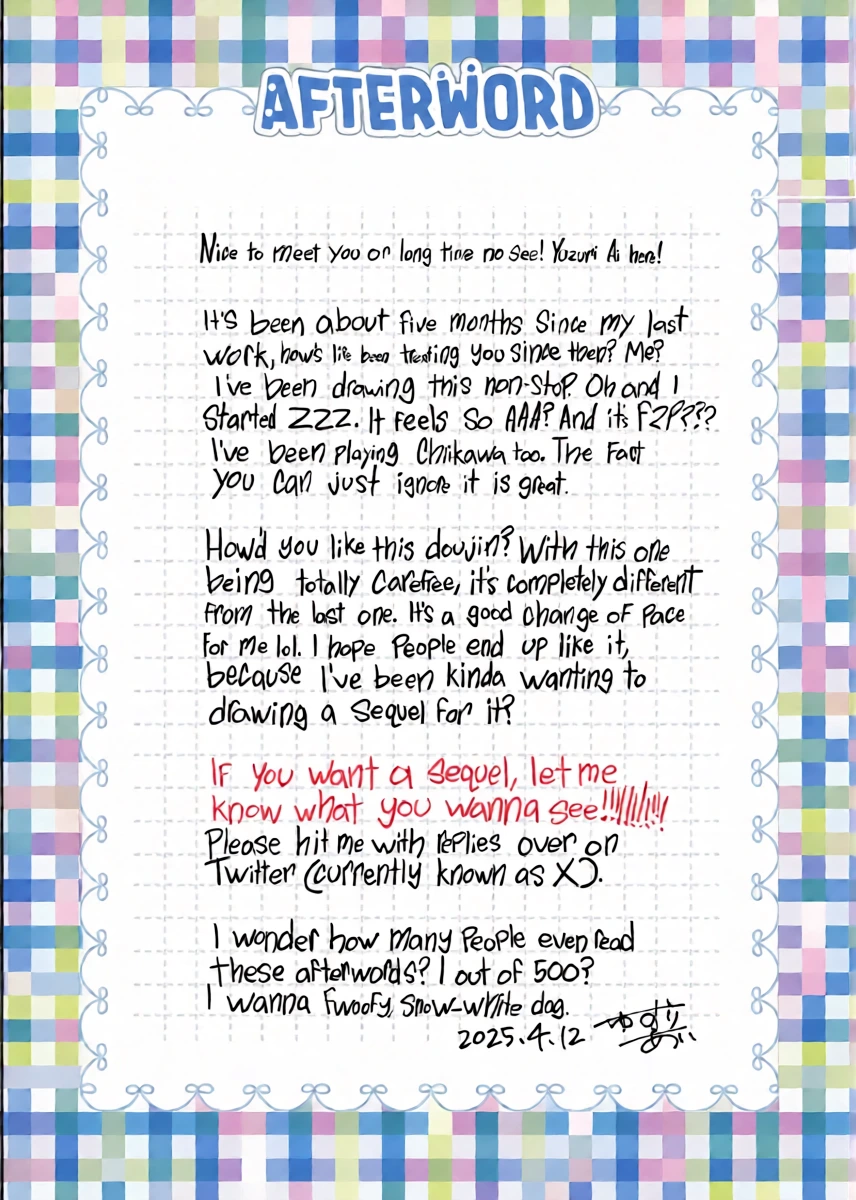 AFTERWORD
Nice to meet you or long time no see! Yuzuri Ai here!
It's been about five months since my last
work, how's life been treating you since then? Me?
I've been drawing this non-stop. Oh and I
started ZZZ. It feels so AAA? And it's F2P???
I've been playing Chiikawa too. The fact
you can just ignore it is great.
How'd you like this doujin? With this one
being totally carefree, it's completely different
from the last one. It's a good change of pace
for me lol. I hope people end up like it,
because I've been kinda wanting to
drawing a sequel for it?
If you want a sequel, let me
know what you wanna see!!!!!!!!!!
Please hit me with replies over on
Twitter (currently known as X).
I wonder how many people even read
these afterwords? 1 out of 500?
I wanna fwoofy, snow-white dog.
2025.4.12 ゆずり
あい